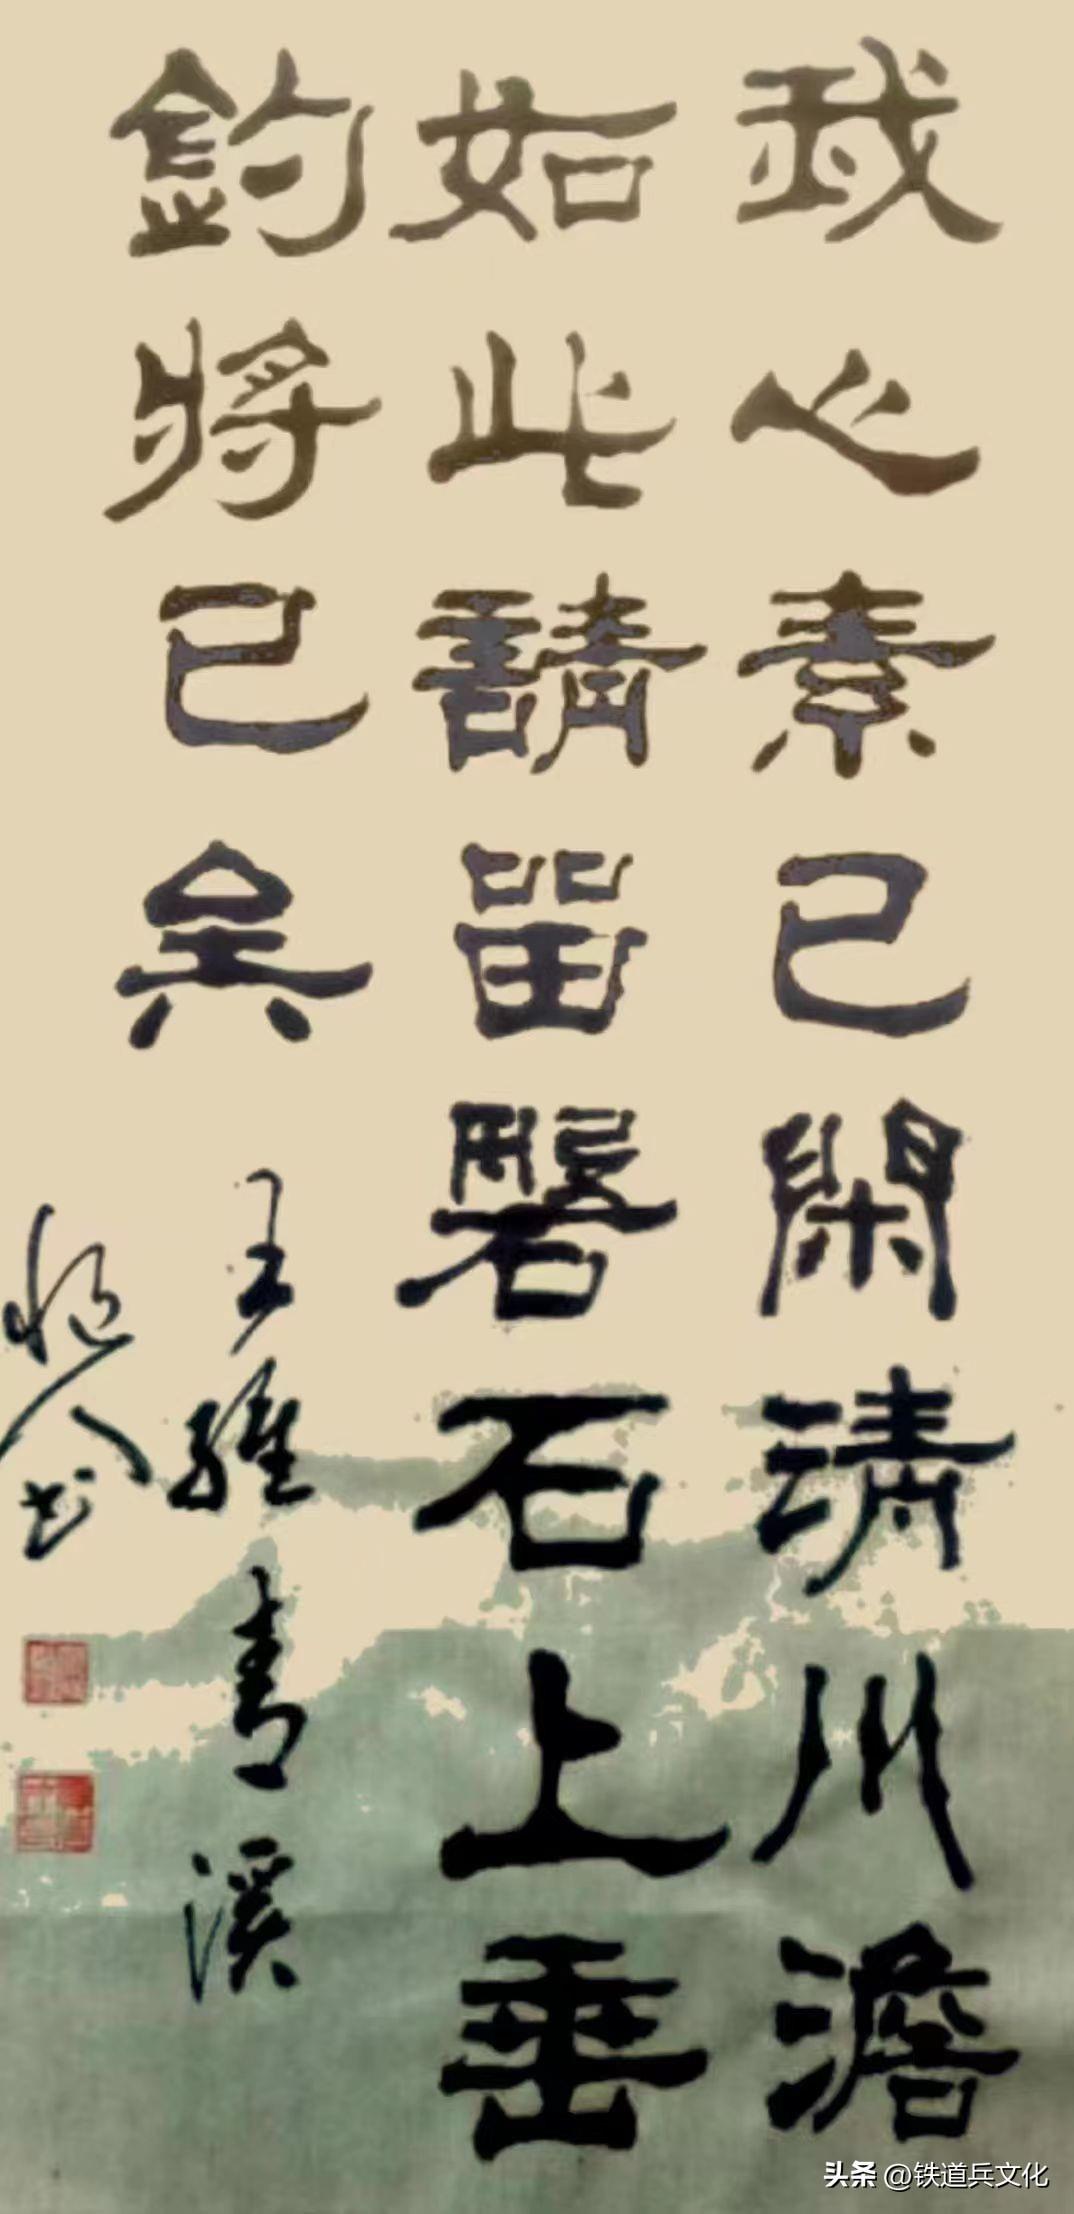 我心素已閑清川澹
如此請留磐石上垂
釣將已矣
王維青溪
书
头条 @铁道兵文化